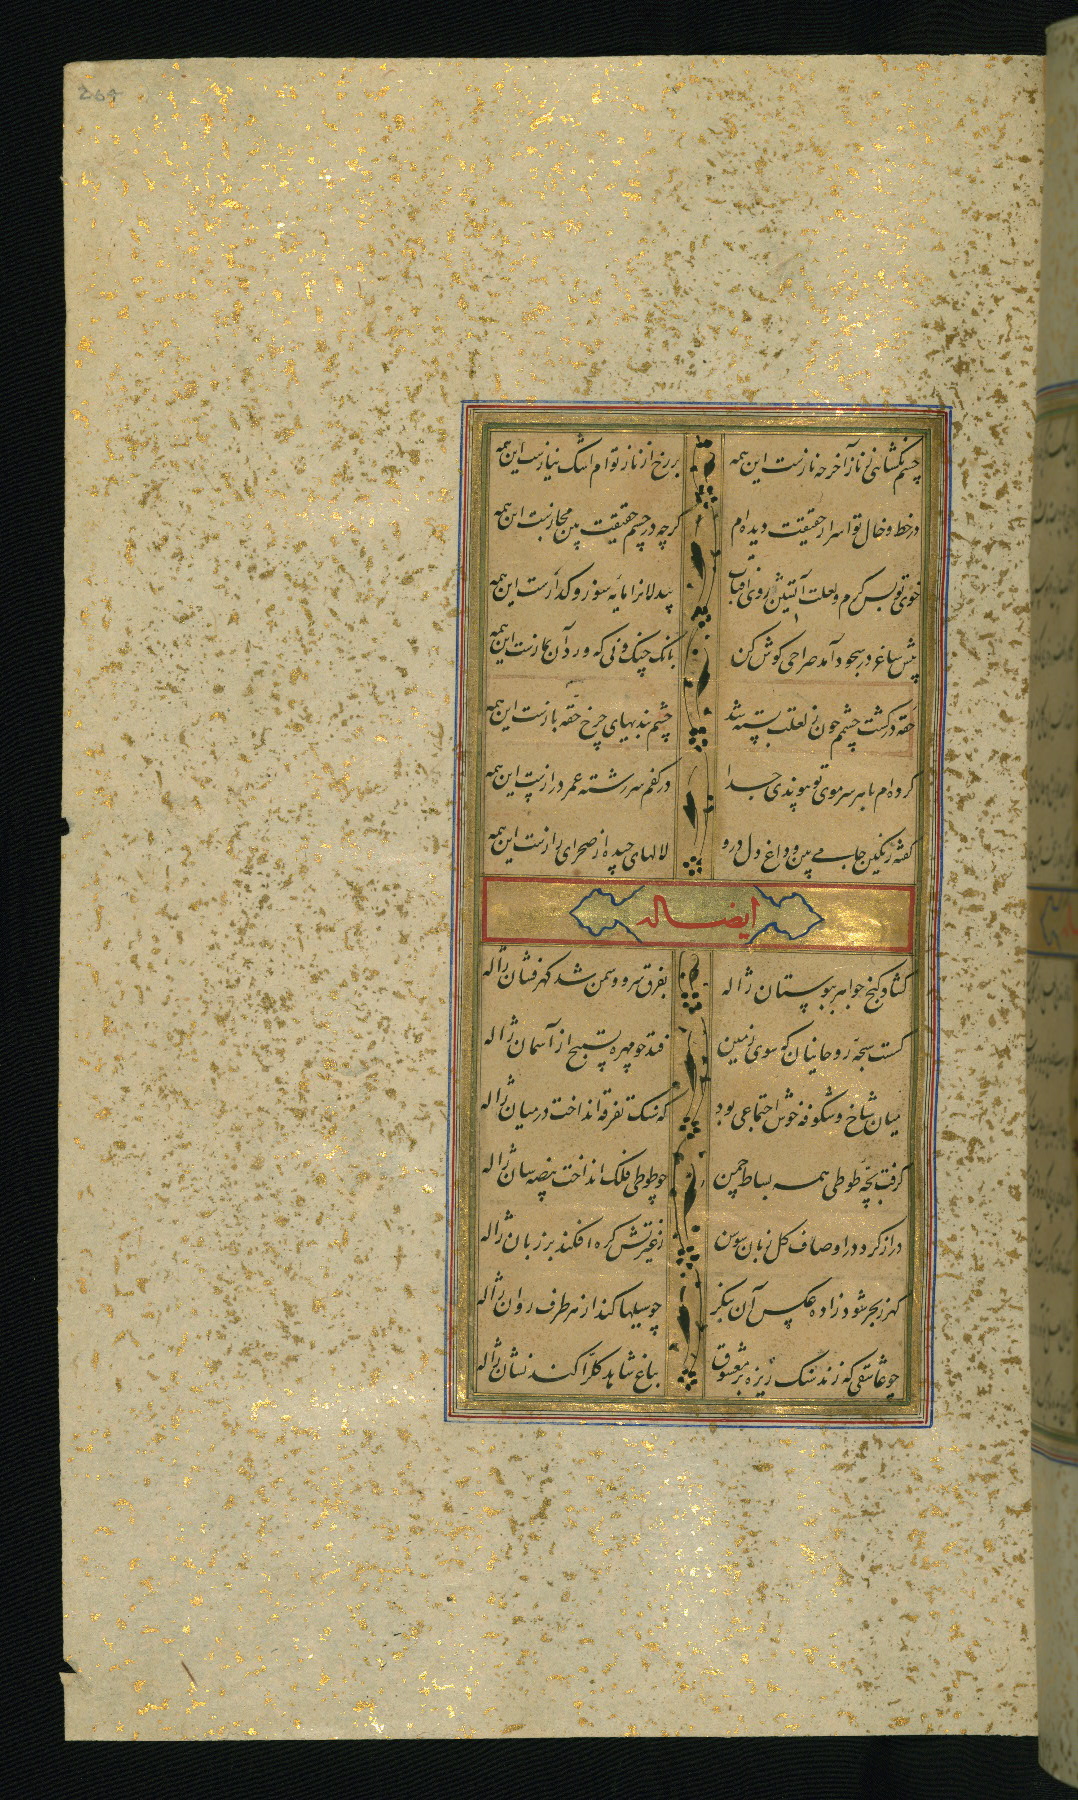 264
چشم نگشائی ز ناز آخر چه نازست این همه بر رخ از ناز توام اشک نیازست این همه
در خط و خال تو اسرار حقیقت دیده‌ام گرچه در چشم حقیقت بین مجازست این همه
خوی تو بس گرم و لعلت آتشین روی آفتاب بیدلانرا مایه سوز و گدازست این همه
پیش ساغر در سجود آمد صراحی گوش کن بانک چنگ و نی که ورد آن نمازست این همه
حقه در گشت چشمم چون ز لعلت بسته شد چشم بندیهای چرخ حقه بازست این همه
کرده‌ام با هر سر موی تو پیوندی جدا در کفم سر رشته عمر درازست این همه
گفته رنگین جامی بین و داغ دل درو لالهای چیده از صحرای رازست این همه
ایضا له
گشاد گنج جواهر ببوستان ژاله بفرق سرو و سمن شد گهرفشان ژاله
گسست سبحه روحانیان که سوی زمین فتد چو مهره تسبیح از آسمان ژاله
میان شاخ و شکوفه خوش اجتماعی بود که سنگ تفرقه انداخت در میان ژاله
گرفت بچه طوطی همه بساط چمن چو طوطی فلک انداخت بیضه سان ژاله
دراز کرد در اوصاف گل زبان سوسن ز غیرتش گره افکند بر زبان ژاله
گهر ز بحر شود زاده عکس آن بنگر چو سیلها کند از هر طرف روان ژاله
چو عاشقی که زند سنگ ریزه بر معشوق بباغ شاهد گل را کند نشان ژاله